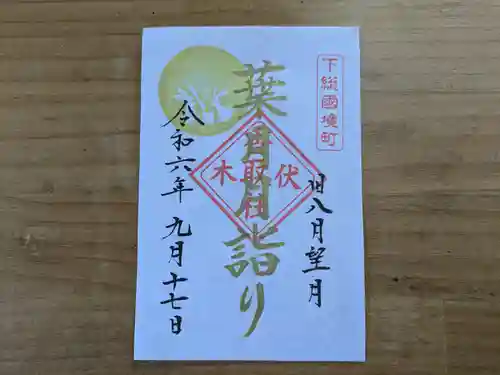 下総國境町
旧八月望月
葉月月詣り
伏木香取社
令和六年 九月十七日